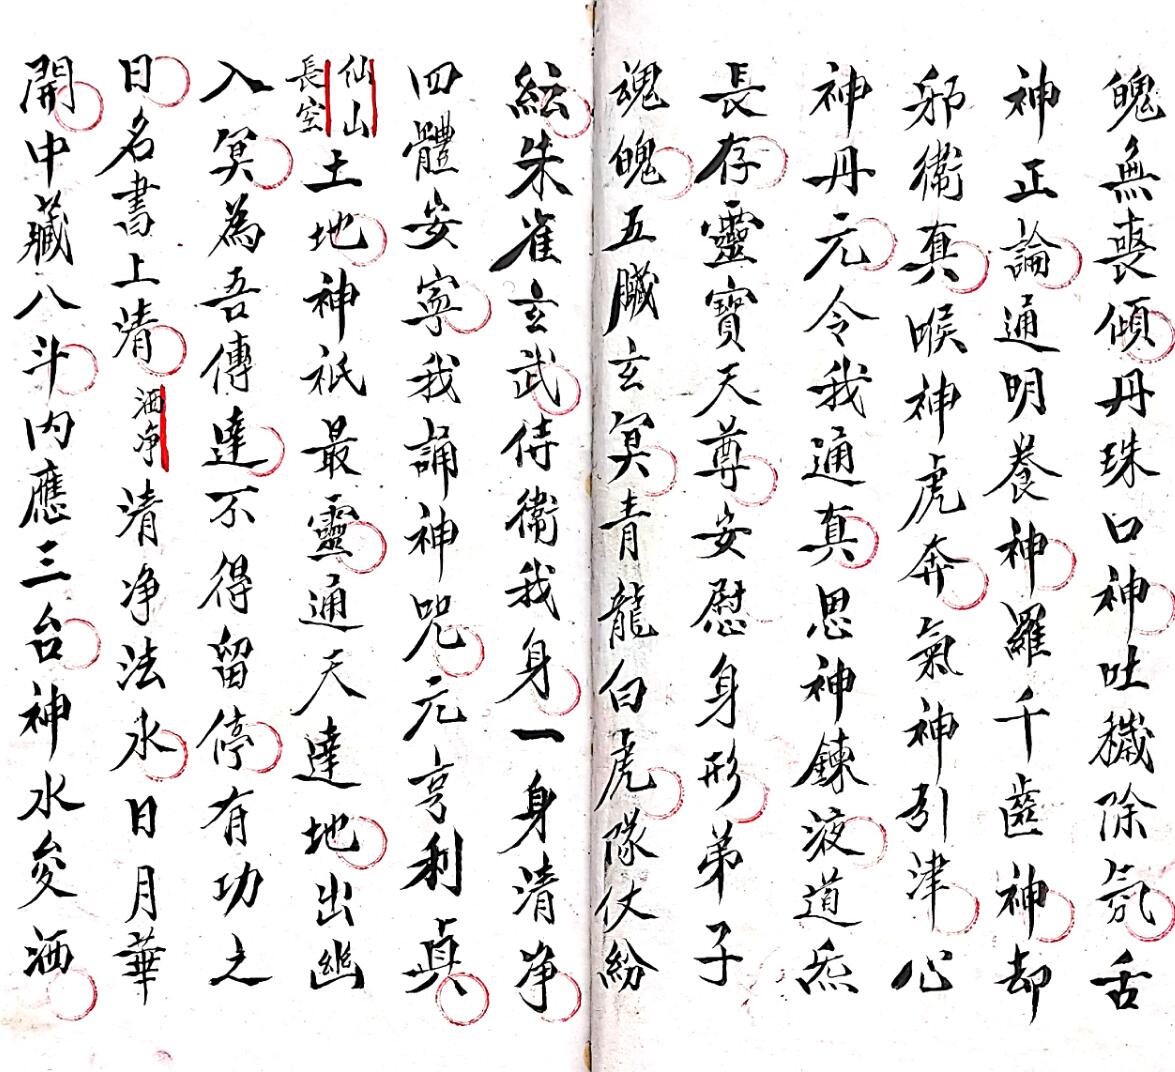 魄無喪傾丹珠口神吐穢除氛舌
神正論通明養神羅千齒神却
邪衛真喉神虎奔氣神引津心
神丹元令我通真思神鍊液道炁
長存靈寶天尊安慰身形弟子
魂魄五臟玄冥青龍白虎隊仗紛
紜朱雀玄武侍衛我身一身清净
四體安寧我誦神咒元亨利貞
仙山
長空
土地神祇最靈通天達地出幽
入冥為吾傳達不得留停有功之
日名書上清
洒净
清净法水日月華
開中藏八斗内應三台神水変洒